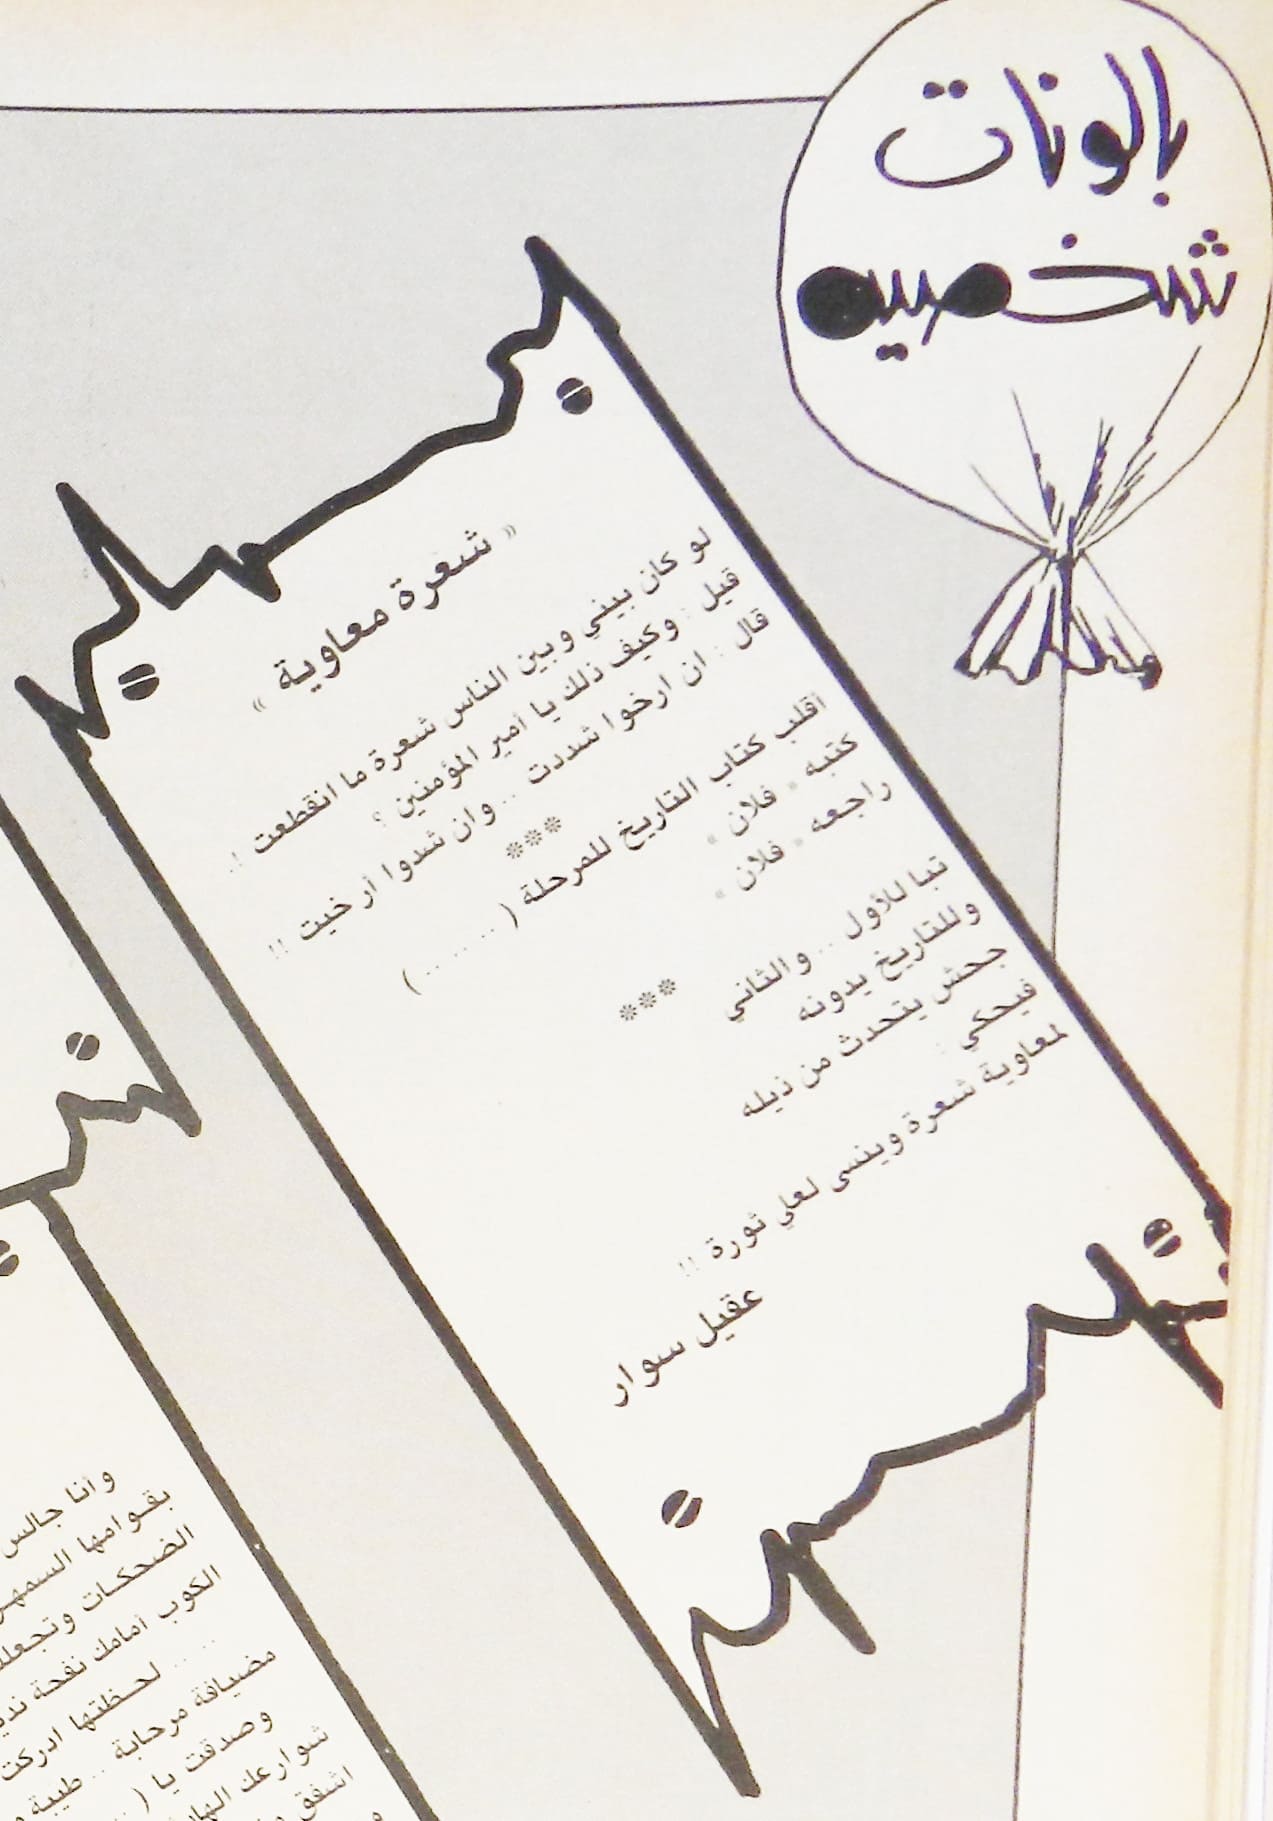 بالونات
شخصيه
« شعرة معاوية »
لو كان بيني وبين الناس شعرة ما انقطعت !.
قيل : وكيف ذلك يا أمير المؤمنين ؟
قال : ان ارخوا شددت .. وان شدوا أرخيت !!
***
أقلب كتاب التاريخ للمرحلة ( ... ... ... )
كتبه « فلان »
راجعه « فلان »
***
تبا للأول ... والثاني
وللتاريخ يدونه
جحش يتحدث من ذيله
فيحكي :
لمعاوية شعرة وينسى لعلي ثورة !!
عقيل سوار
وأنا جالس
بقوامها
الضحكات
الكوب أمامك نفحة
... لحظتها ادركت
مضيافة مرحابة .. طيبة
وصدقت يا ( ..
شوارعك
اشفق